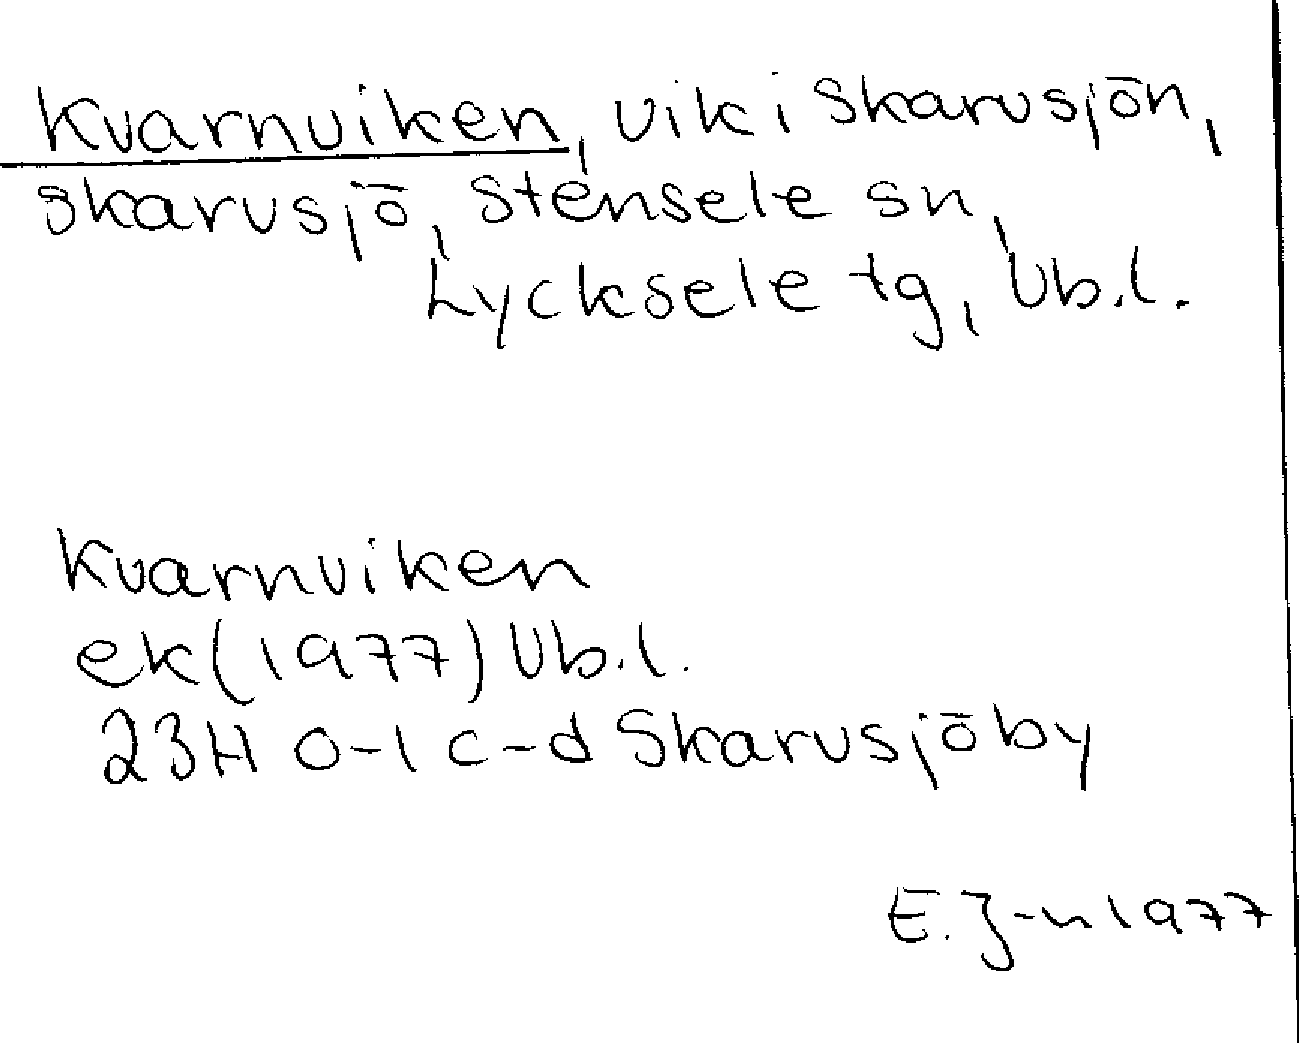 Kvarnviken, vik i Skarvsjön,
Skarvsjö, Stensele sn,
Lycksele tg, Vb.l.
Kvarnviken
ek(1977) Vb.l.
23H 0-1 c-d Skarvsjöby
E.J-n 1977